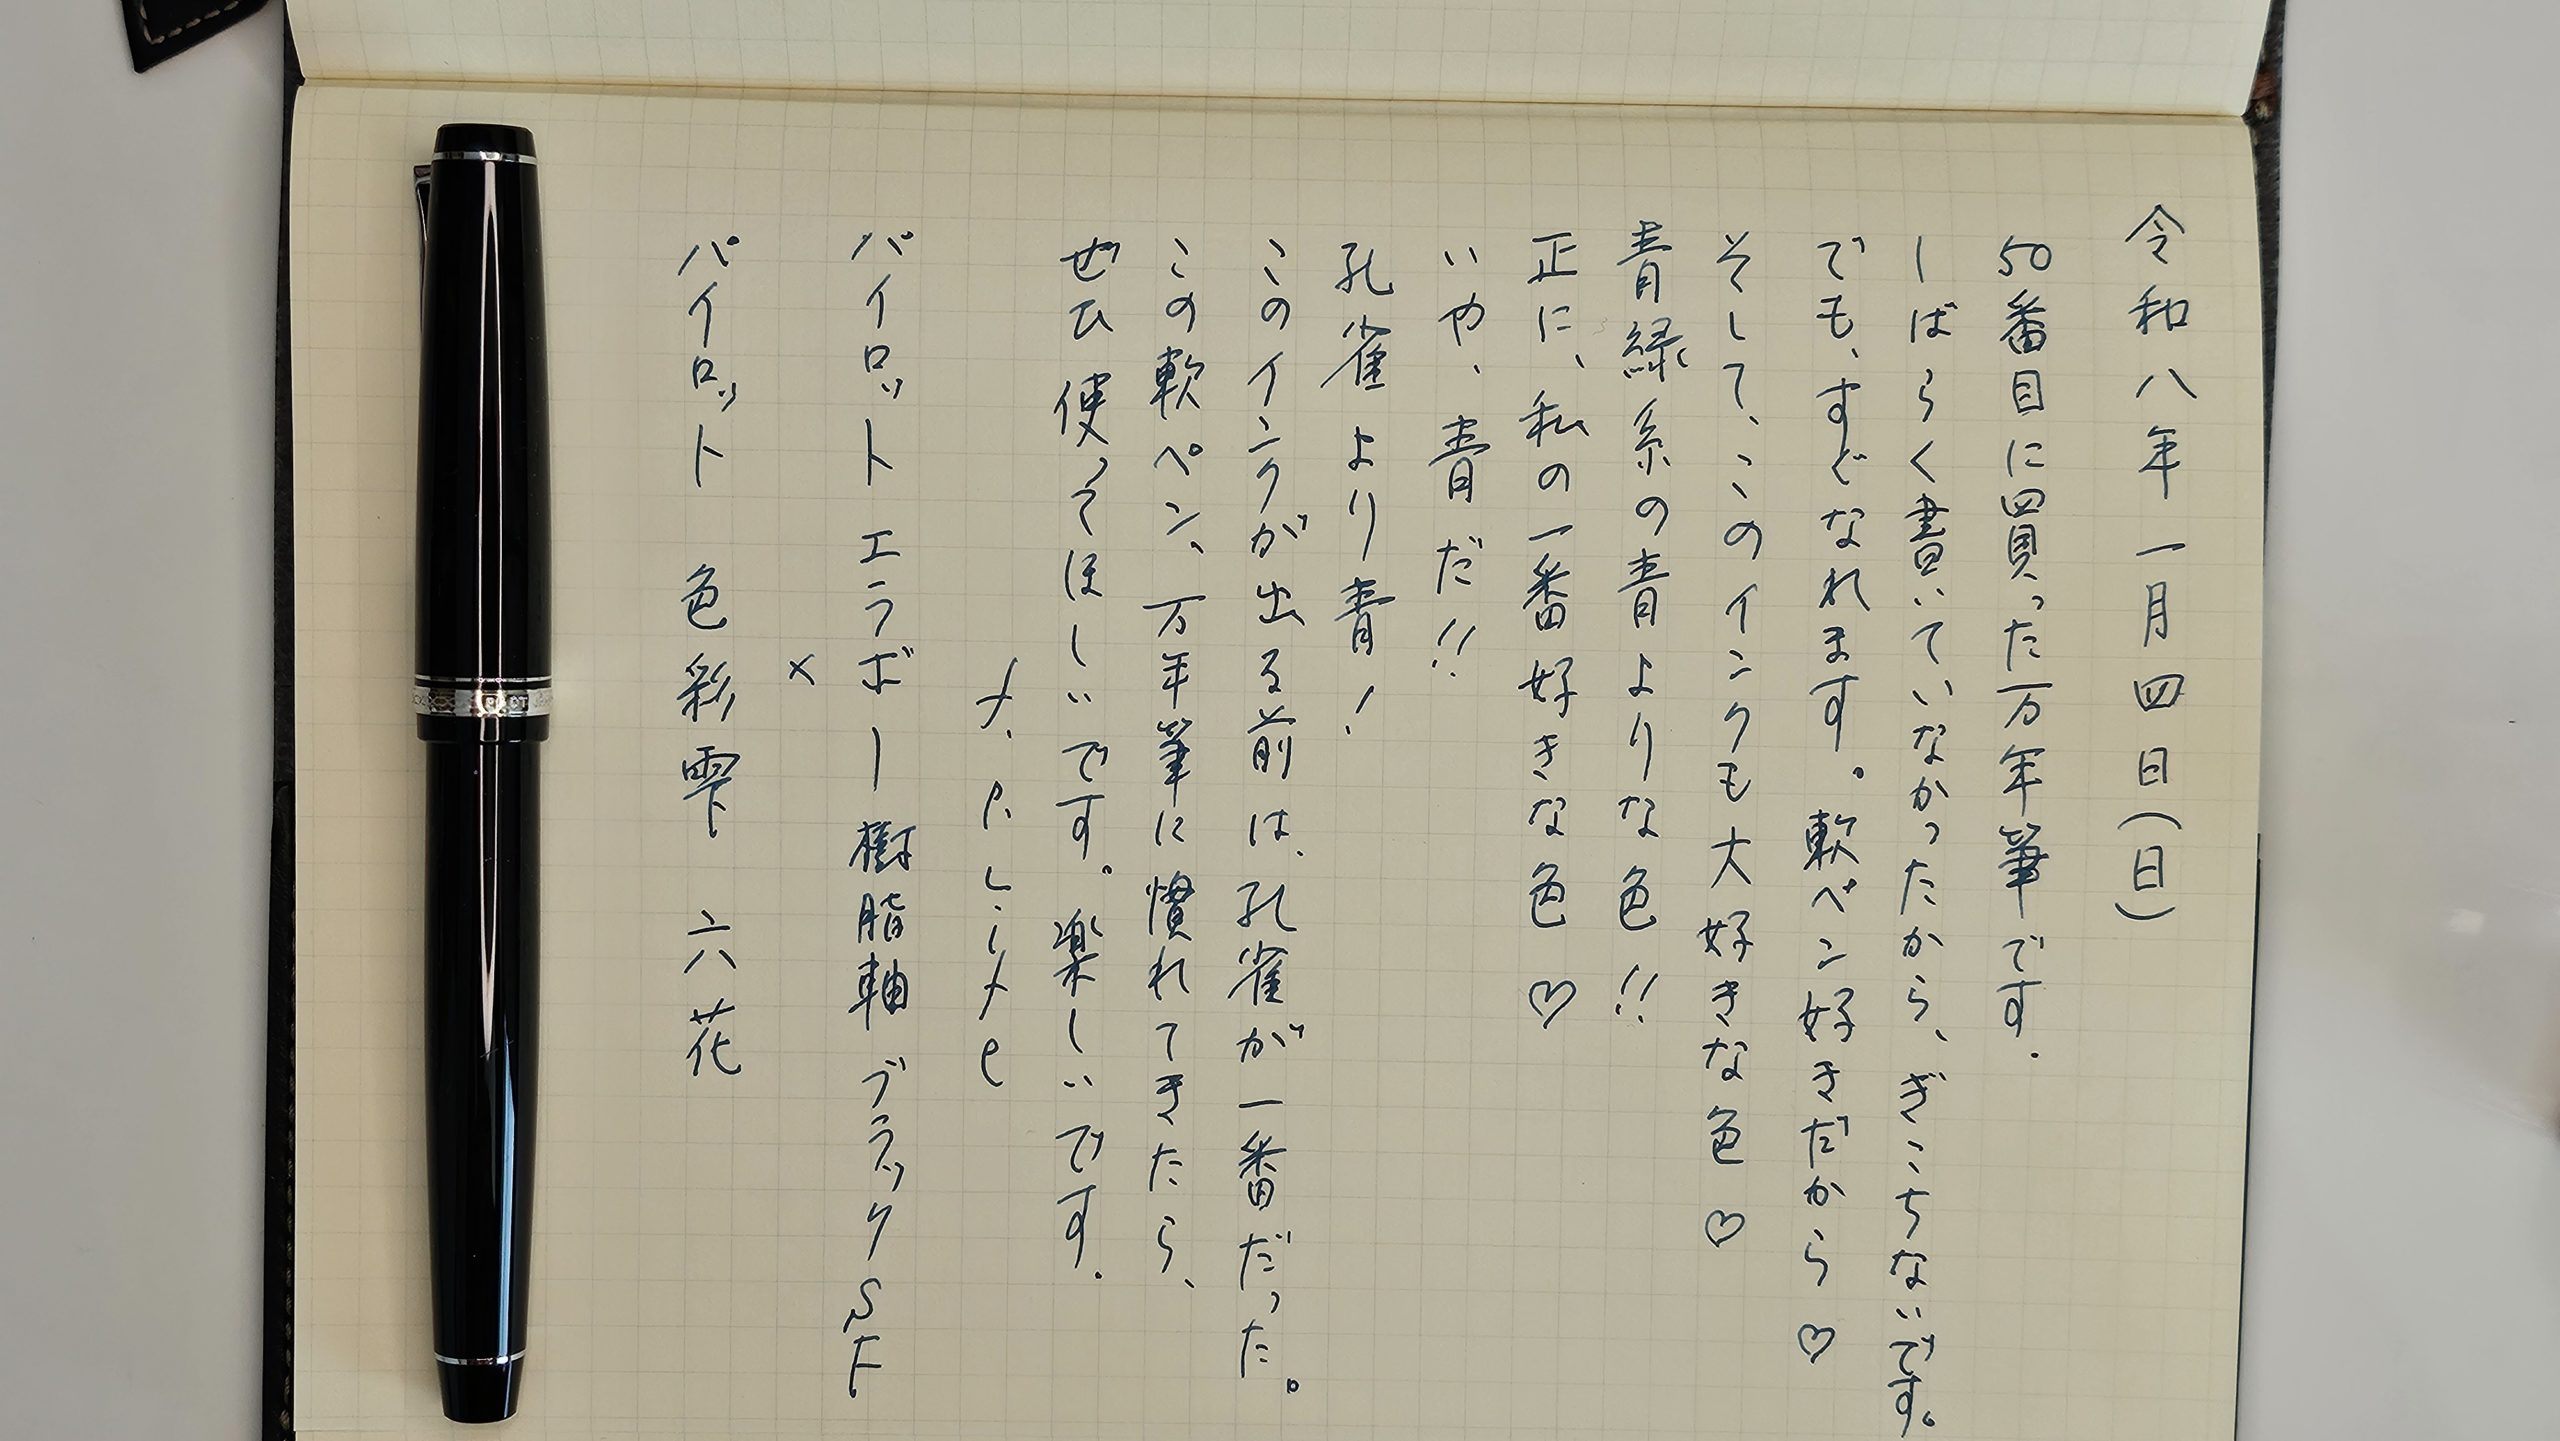 令和八年一月四日(日)
50番目に買った万年筆です.
しばらく書いていなかったから、ぎこちないです。
でも、すぐなれます。軟ペン好きだから♡
そして、このインクも大好きな色♡
青緑系の青よりな色!!
正に、私の一番好きな色♡
いや、青だ!!
孔雀より青!
このインクが出る前は、孔雀が一番だった。
この軟ペン、万年筆に慣れてきたら、
ぜひ使ってほしいです。楽しいです.
パイロット エラボー樹脂軸ブラックSF
×
パイロット 色彩雫 六花